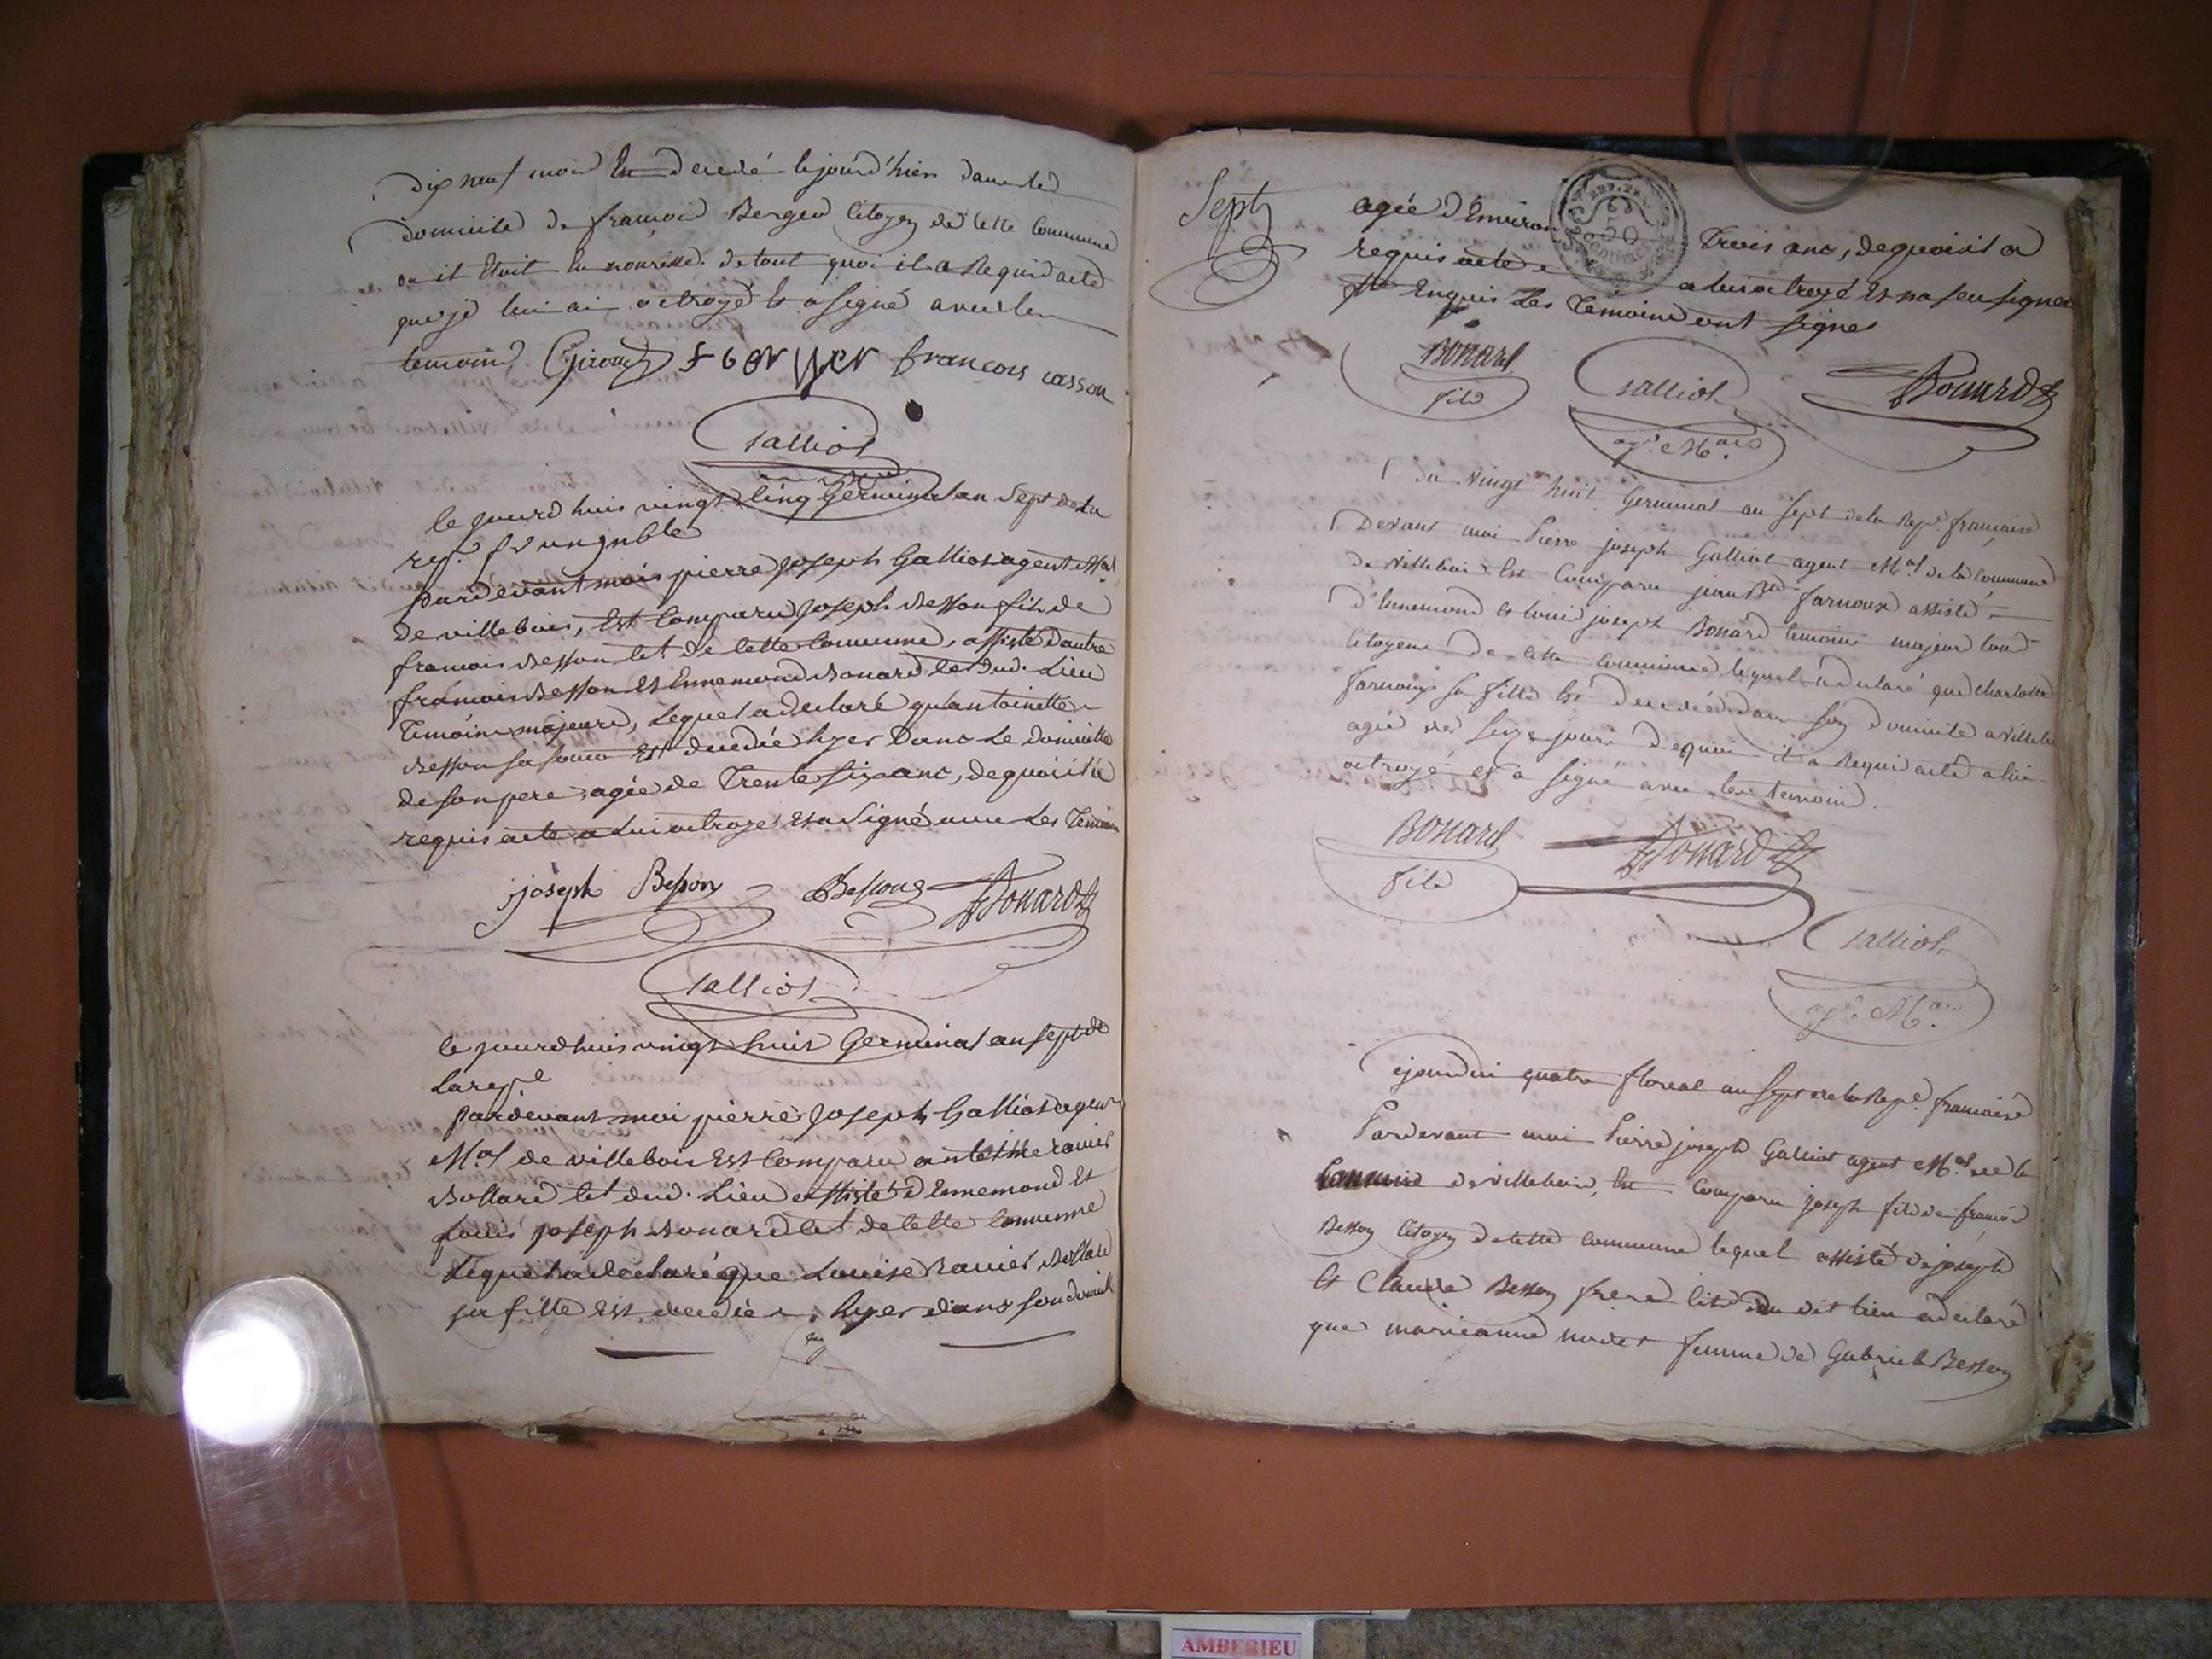 dix neuf mois Est decedé lejourd'hier dans led
domicile de francois Berger Citoyen de Cette Commune
ou il Etoit En nourisse. de tout quoi il a Requis acte
que je lui ai octroyé Et a signé avec les
temoins. Giroud françois casson
Galliot
le jourd huis vingt Cinq Germinal an Sept de La
rep. fr
pardevant mois pierre Joseph Galliot agent Mal
de villebois, Est Comparu Joseph Besson fils de
francois Besson Cit de Cette Commune, assisté dautre
francois Besson Et Ennemond Bonard Cit dud. Lieu
Temoins majeurs, Lequel a declaré quantoinette
Besson sa soeur Est decedée hyer Dans Le domicille
de son pere, agée de Trente six ans, de quoi il a
requis acte a Lui octroyé Et a Signé avec Les Temoins
joseph Besson Bessong Bonard
Galliot
le jourd huis vingt huit Germinal an sept de
La repe
pardevant moi pierre Joseph Galliot agent
Mal de villebois Est Comparu ravier
Bollard Cit dud. Lieu assisté d Ennemond Et
Louis joseph Bonard Cit de Cette Commune
Lequel a declaré que Louise Ravier Bollard
sa fille Est decedée hyer dans son domicile
Sept
agée d'Environ Trois ans, de quoi il a
requis acte a lui octroyé Et na seu signer
Enquis Les Temoins ont signes
Bonard Galliot Bonard
fils agt. Mal
du Vingt huit Germinal an Sept de la Rep. française
Devant moi Pierre joseph Galliot agent Mal de la Commune
de Villebois Est Comparu jean Bte farnoux assisté
d'Ennemond et Louis joseph Bonard temoins majeurs tous
Citoyens de Cette Commune lequel a declaré que Charlotte
farnoux sa fille Est decedée dans son domicile a Villebois
agée de Seize jours de quoi il a Requis acte a lui
octroyé et a signé avec les temoins.
Bonard Bonard
fils
Galliot
agt. Mal
Cejourdui quatre floreal an Sept de la Repe. francaise
Pardevant moi Pierre joseph Galliot agent Mal de la
Commune de Villebois, Est Comparu joseph fils de francois
Besson Citoyen de Cette Commune lequel assisté de joseph
Et Claude Besson freres Cits du dit lieu a declaré
que marieanne femme de Gabriel Besson
AMBERIEU